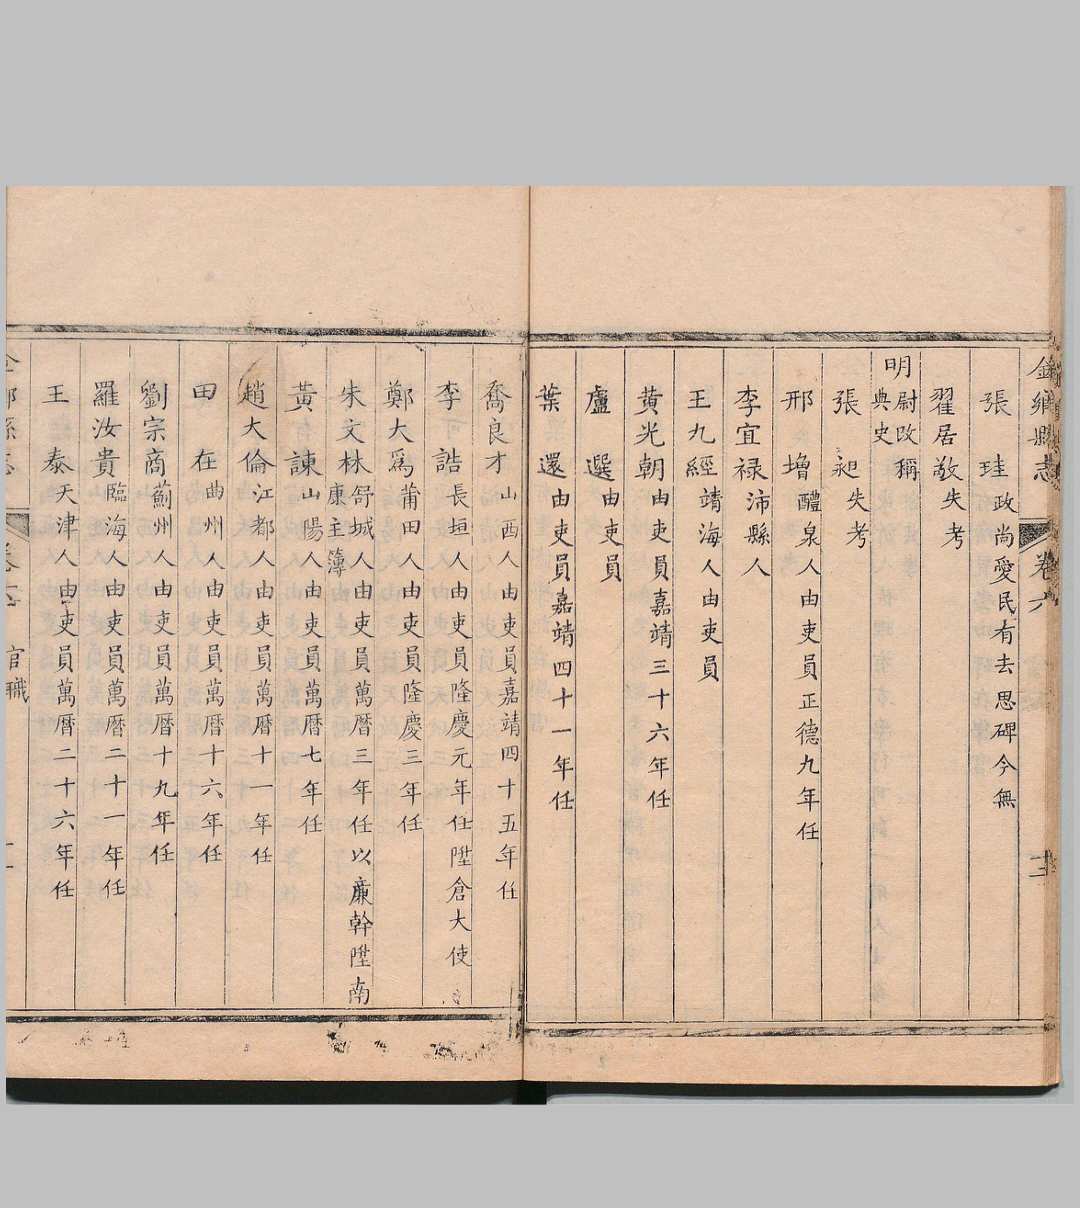 金鄉縣志 卷六
張珪 政尚愛民有去思碑今無
翟居敬 失考
明 尉改稱典史
張昶 失考
邢增 醴泉人由吏員正德九年任
李宜禄 沛縣人
王九經 靖海人由吏員
黄光朝 由吏員嘉靖三十六年任
盧選 由吏員
葉還 由吏員嘉靖四十一年任
喬良才 山西人由吏員嘉靖四十五年任
李誥 長垣人由吏員隆慶元年任陞倉大使
鄭大爲 莆田人由吏員隆慶三年任
朱文林 舒城人由吏員萬曆三年任以廉幹陞南康主簿
黄諫 山陽人由吏員萬曆七年任
趙大倫 江都人由吏員萬曆十一年任
田在 曲州人由吏員萬曆十六年任
劉宗商 薊州人由吏員萬曆十九年任
羅汝貴 臨海人由吏員萬曆二十一年任
王泰 天津人由吏員萬曆二十六年任
官職